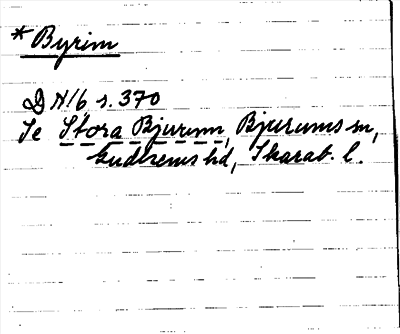 * Byrim
DN 16 s. 370
Se Stora Bjurum, Bjurums sn,
Gudhems hd, Skarab. l.